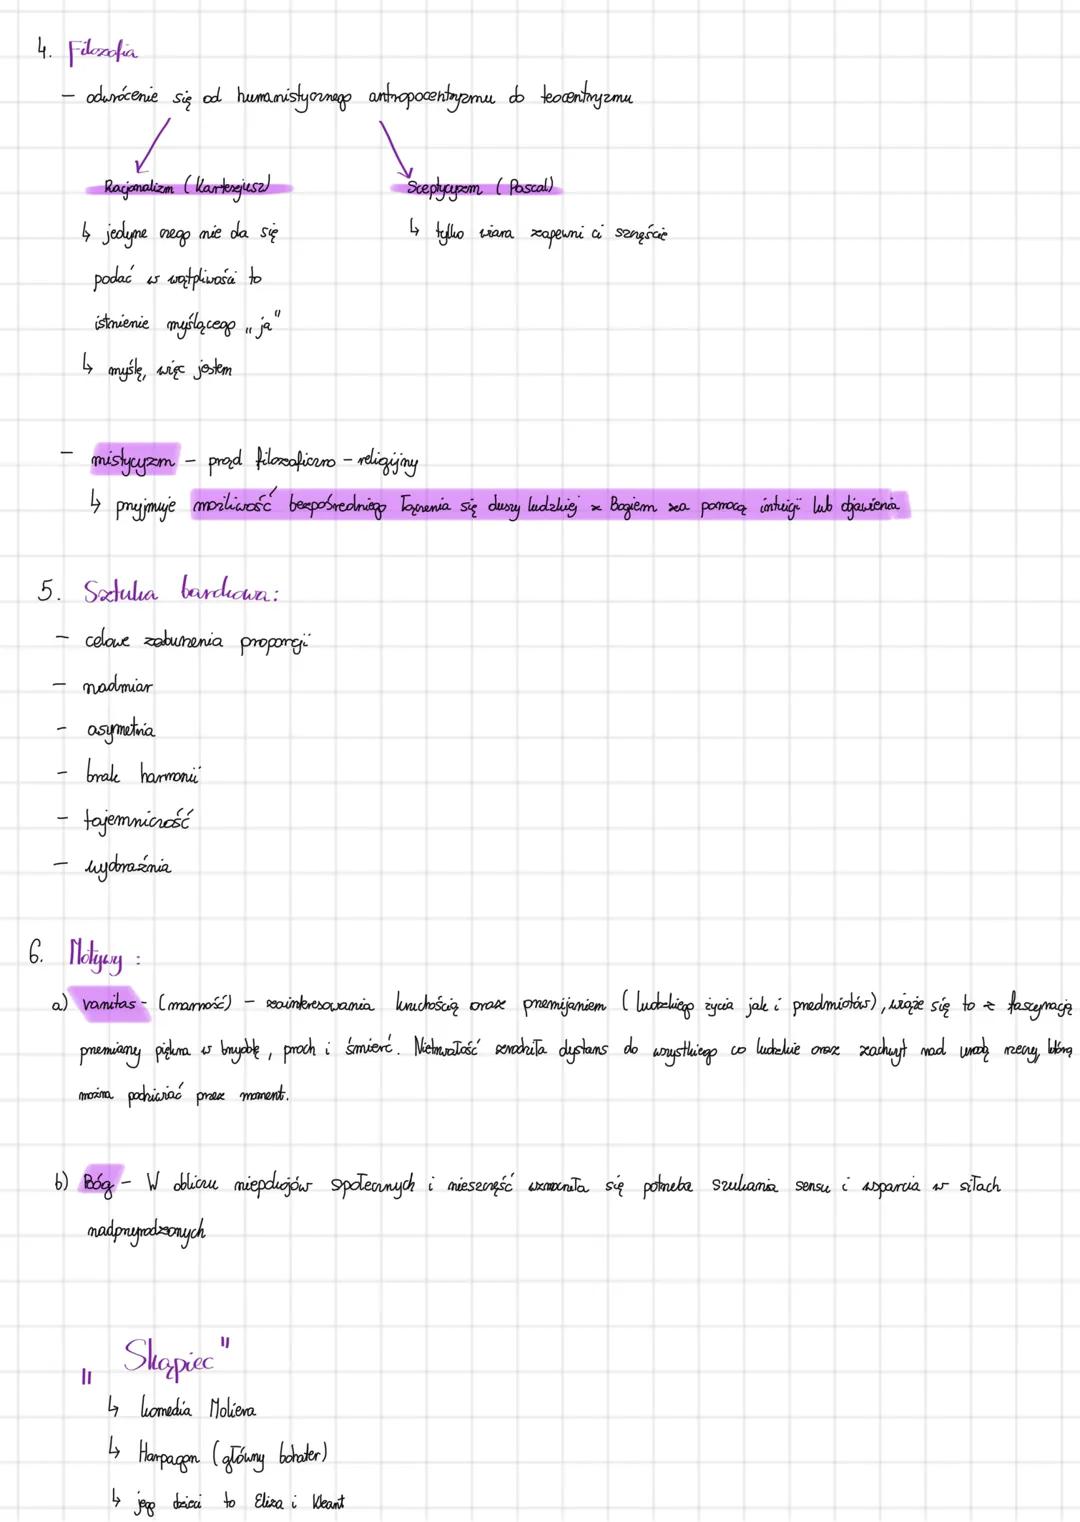 4. Filozofia
– odwrócenie się od humanistycznego antropocentryzmu do teocentryzmu
Racjonalizm (Kartezjusz) Sceptycyzm (Pascal)
↳ jedyne czego nie da się ↳ tylko wiara zapewni ci szczęście
podać w wątpliwości to
istnienie myślącego „ja"
↳ myślę, więc jestem
– mistycyzm – prąd filozoficzno – religijny
↳ przyjmuje możliwość bezpośredniego łączenia się duszy ludzkiej z Bogiem za pomocą intuicji lub objawienia
5. Sztuka barokowa:
– celowe zaburzenia proporcji
– nadmiar
– asymetria
– brak harmonii
– tajemniczość
– wyobraźnia
6. Motywy :
a) vanitas – (marność) – zainteresowania kruchością oraz przemijaniem (ludzkiego życia jak i przedmiotów), wiąże się to z fascynacją
przemiany piękna w brzydkę, proch i śmierć. Nietrwałość zrodziła dystans do wszystkiego co ludzkie oraz zachwyt nad urodą rzeczy, którą
można podziwiać przez moment.
b) Bóg – W obliczu niepokojów społecznych i nieszczęść wzmocniła się potrzeba szukania sensu i wsparcia w siłach
nadprzyrodzonych
„Skąpiec"
↳ komedia Moliera
↳ Harpagon (główny bohater)
↳ jego dzieci to Eliza i Kleant